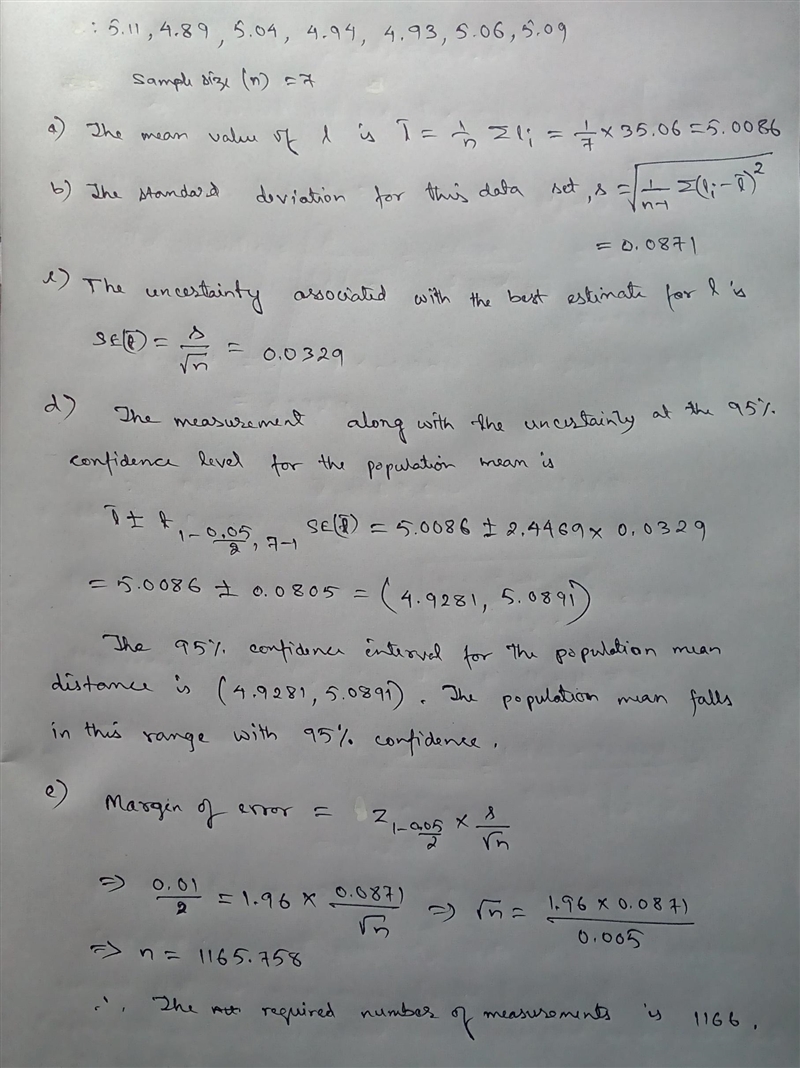 : 5.11, 4.89, 5.04, 4.94, 4.93, 5.06, 5.09
Sample size (n) = 7
a) The mean value of l is l̄ = 1/n Σli = 1/7 × 35.06 = 5.0086
b) The standard deviation for this data set, s = √(1/(n-1) Σ(li - l̄)²)
= 0.0871
c) The uncertainty associated with the best estimate for l is
SE(l̄) = s/√n = 0.0329
d) The measurement along with the uncertainty at the 95%
confidence level for the population mean is
l̄ ± t1-0.05/2, 7-1 SE(l̄) = 5.0086 ± 2.4469 × 0.0329
= 5.0086 ± 0.0805 = (4.9281, 5.0891)
The 95% confidence interval for the population mean
distance is (4.9281, 5.0891). The population mean falls
in this range with 95% confidence.
e) Margin of error = z1-0.05/2 × s/√n
⇒ 0.01/2 = 1.96 × 0.0871/√n ⇒ √n = 1.96 × 0.0871/0.005
⇒ n = 1165.758
∴ The required number of measurements is 1166.